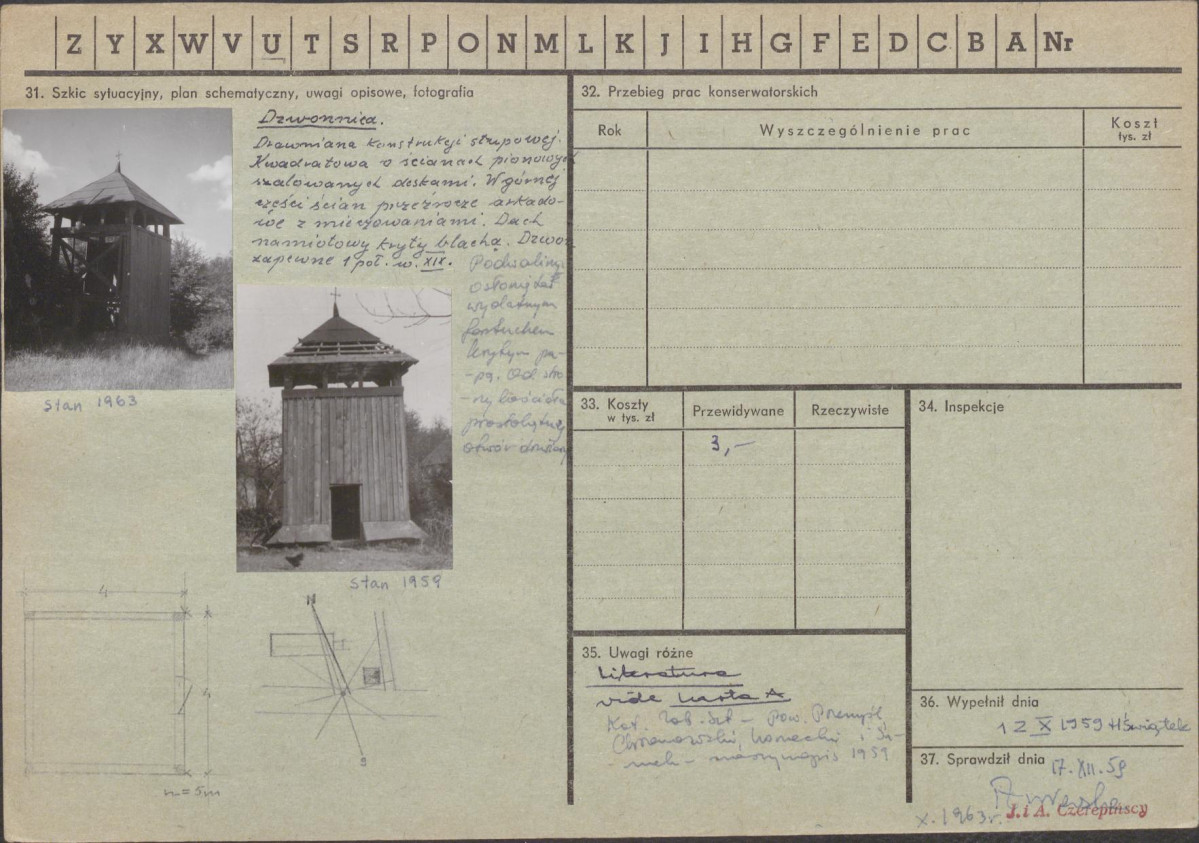 Z Y X W V U T S R P O N M L K J I H G F E D C B A Nr
31. Szkic sytuacyjny, plan schematyczny, uwagi opisowe, fotografia
Dzwonnica.
Drewniana konstrukcji słupowej.
Kwadratowa o ścianach pionowych
szalowanych deskami. W górnej
części ścian przeźrocze arkado-
we z mieczowaniami. Dach
namiotowy kryty blachą. Dzwon
zapewne 1 poł. w. XIX.
Podwaliny
osłonięte
wydatnym
fartuchem
krytym pa-
-pą. Od stro-
-ny kościoła
prostokątny
otwór
Stan 1963
Stan 1959
4
4
m = 5m
N
S
32. Przebieg prac konserwatorskich
Rok
Wyszczególnienie prac
Koszt
tys. zł
33. Koszty
w tys. zł
Przewidywane
Rzeczywiste
3,-
34. Inspekcje
35. Uwagi różne
Literatura
vide karta A
Kat. Zab. Szt - Pow. Przemyśl
maszynopis 1959
36. Wypełnił dnia
12 X 1959 HŚwiątek
37. Sprawdził dnia
17.XII.59
X.1963r. J. i A. Czerepińscy